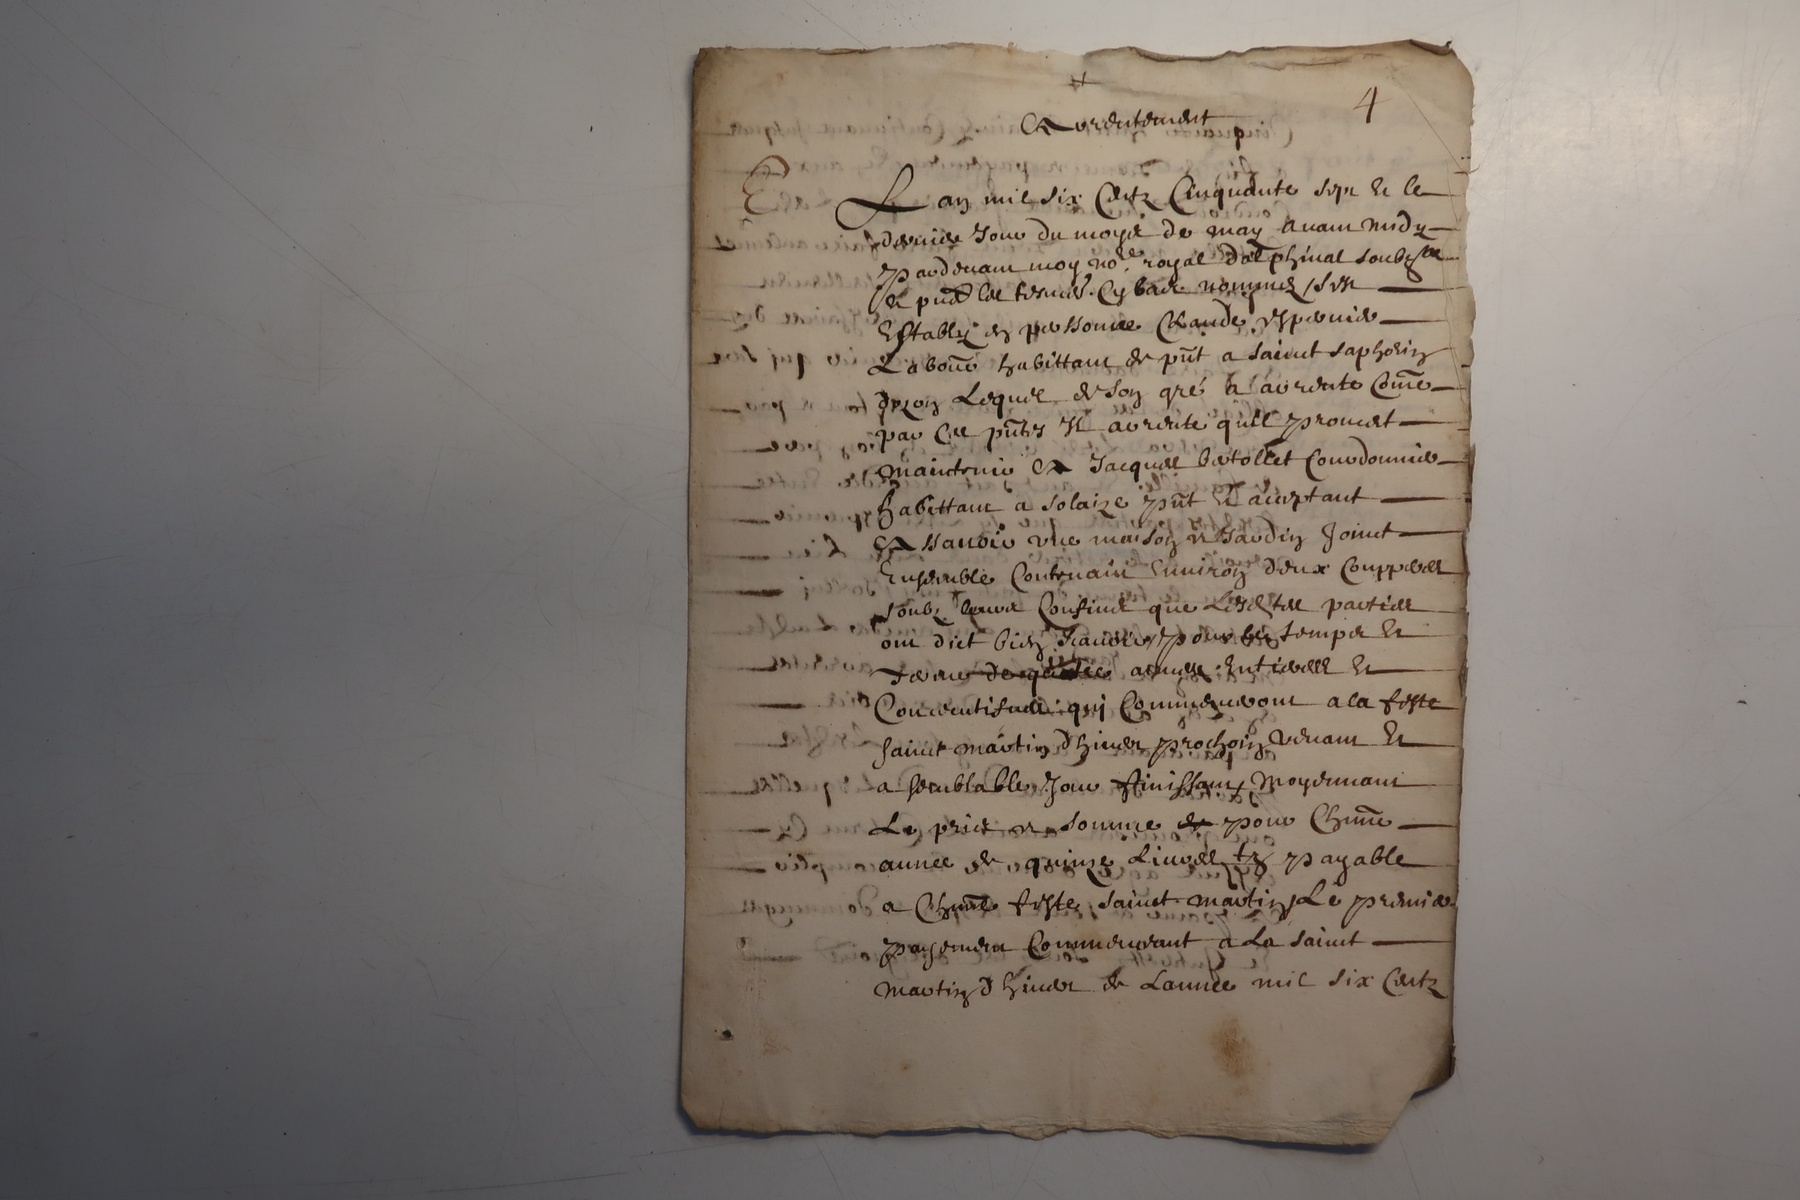 4
Arrentement
E
L an mil six Centz Cinquante sept et le
dernier Jour du moys de may avant midy
pardevant moy no.re royal dalphinal soubz.né
et pñtz les tesmes. Cy bas nommez, sest
Establÿ en personne Claude
Labour habittant de pñt a saint saphorin
dozon Lequel de son gré a arrente Come
par Ces pñtes Il arrente quil promet
Maintenir A Jacques bertollet Courdonnier
habittant a solaize pñt et aceptant
A Scavoir une maison et Jardin Joinct
Ensemble Contenant Environ deux Couppees
soubz leurs Confins que Lesd. parties
ont dict bien scavoir, pour le temps et
terme de annees Entieres et
Consecutifves qui Commenceront a la feste
sainct martin dhiver prochain venant et
a semblable Jour finissant, Moyennant
Le pris et somme de pour Chune
annee de quinze Livres tz payable
a Chune feste sainct martin, Le premier
payement Commencant a La sainct
Martin dhiver de Lannee mil six Centz